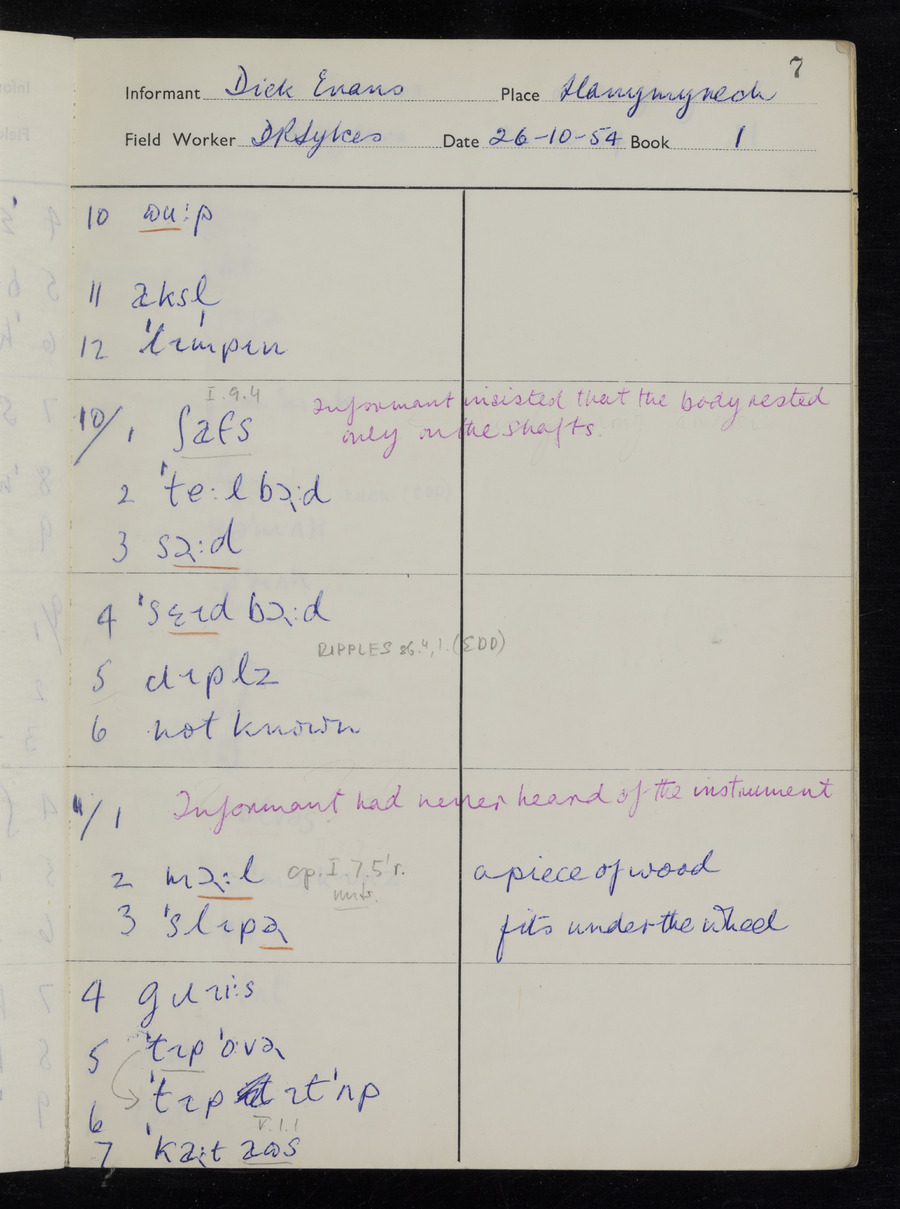 7
Informant Dick Evans Place Llanymynech
Field Worker DRSykes Date 26-10-54 Book 1
10 ωu:p
11 aksl
12 'lɪmpɪn
I.9.4
10/1 ʃafs
Informant insisted that the body rested
only on the shafts.
2 'te:lbɔ:d
3 sə:d
4 'sɛɪdbɔ:d
RIPPLES (EDD)
5 dɹɪplz
6 not known
11/1 Informant had never heard of the instrument
2 cp. I.7.5 r. a piece of wood
3 'slɪpə fits under the wheel
4 gɹi:s
5 'tɪp 'o:və
6 'tɪp ɪt 'ʌp
V.1.1
7 'ka:t aωs